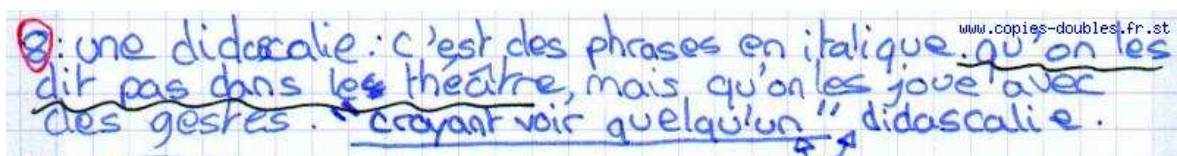 www.copies-doubles.fr.st
8: une didascalie: c'est des phrases en italique qu'on les
dit pas dans les théâtre, mais qu'on les joue avec
des gestes. "croyant voir quelqu'un" didascalie.